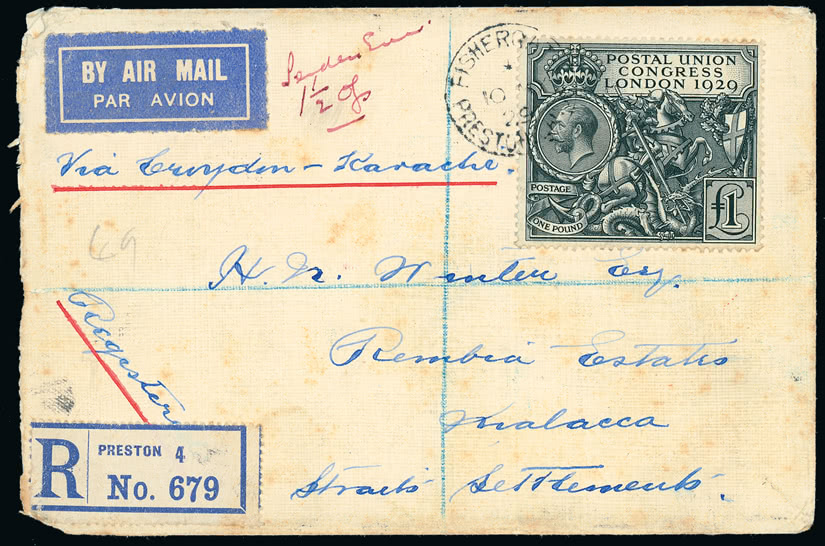 BY AIR MAIL
PAR AVION
1½ ozs
FISHERGATE
10
29
PRESTON
POSTAL UNION
CONGRESS
LONDON 1929
POSTAGE
ONE POUND
£1
Via Croydon – Karachi.
69
H. N. Winter Esq.
Register
Rembia Estates
Malacca
Straits Settlements.
R
PRESTON 4
No. 679